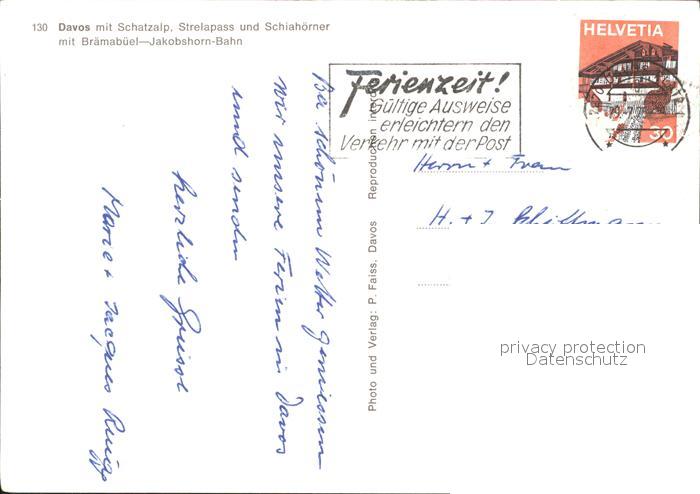 130 Davos mit Schatzalp, Strelapass und Schiahörner
mit Brämabüel—Jakobshorn-Bahn
Bei schönem Wetter geniessen
wir unsere Ferien in Davos
und senden
herzliche Grüsse
Marie + Jacques
Photo und Verlag: P. Faiss, Davos Reproduction
Ferienzeit!
Gültige Ausweise
erleichtern den
Verkehr mit der Post
HELVETIA
30
Herrn + Frau
H. + J.
privacy protection
Datenschutz